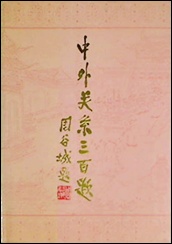 中外关系三百题
周谷城题